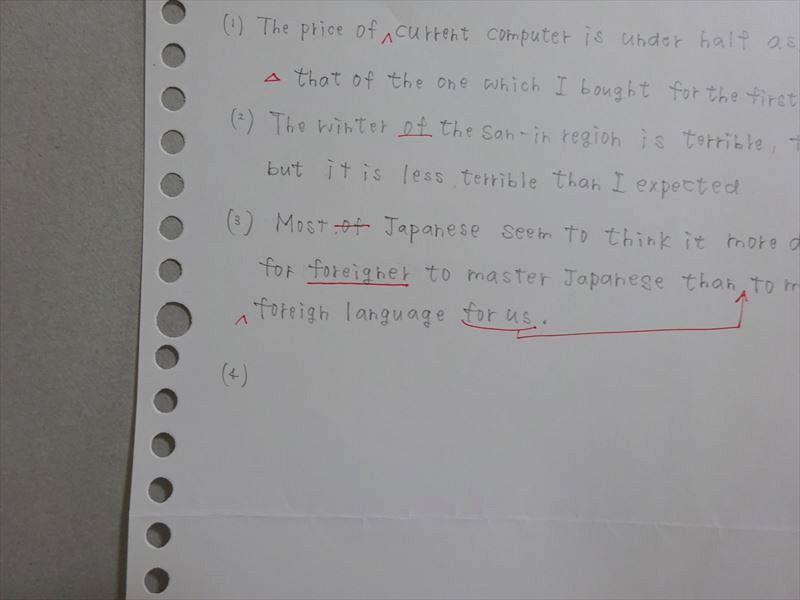 (1) The price of current computer is under half as
that of the one which I bought for the first
(2) The winter of the San-in region is terrible,
but it is less terrible than I expected
(3) Most of Japanese seem to think it more
for foreigner to master Japanese than to
foreign language for us.
(4)